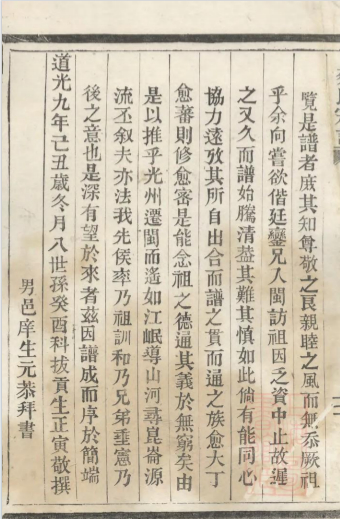 覽是譜者庶其知尊敬之良親睦之風而無忝厥祖
乎余向嘗欲偕廷鑾兄入閩訪祖因乏資中止故遲
之又久而譜始騰清葢其難其慎如此倘有能同心
協力遠攷其所自出合而譜之貫而通之族愈大丁
愈蕃則修愈密是能念祖之德通其義於無窮矣由
是以推乎光州遷閩而遙如江岷導山河尋崑崙源
流丕叙夫亦法我先侯率乃祖訓和乃兄弟垂憲乃
後之意也是深有望於來者茲因譜成而序於簡端
道光九年己丑歲冬月八世孫癸酉科拔貢生正寅敬撰
男邑庠生元恭拜書